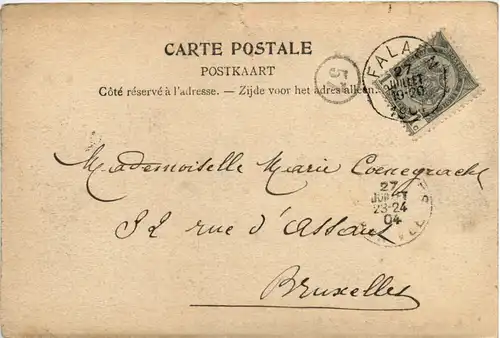 CARTE POSTALE
POSTKAART
Côté réservé à l'adresse. — Zijde voor het adres alleen.
57
27
JUILLET
19-20
Mademoiselle Marie
27
23-24
04
52 rue d'Assaut
Bruxelles